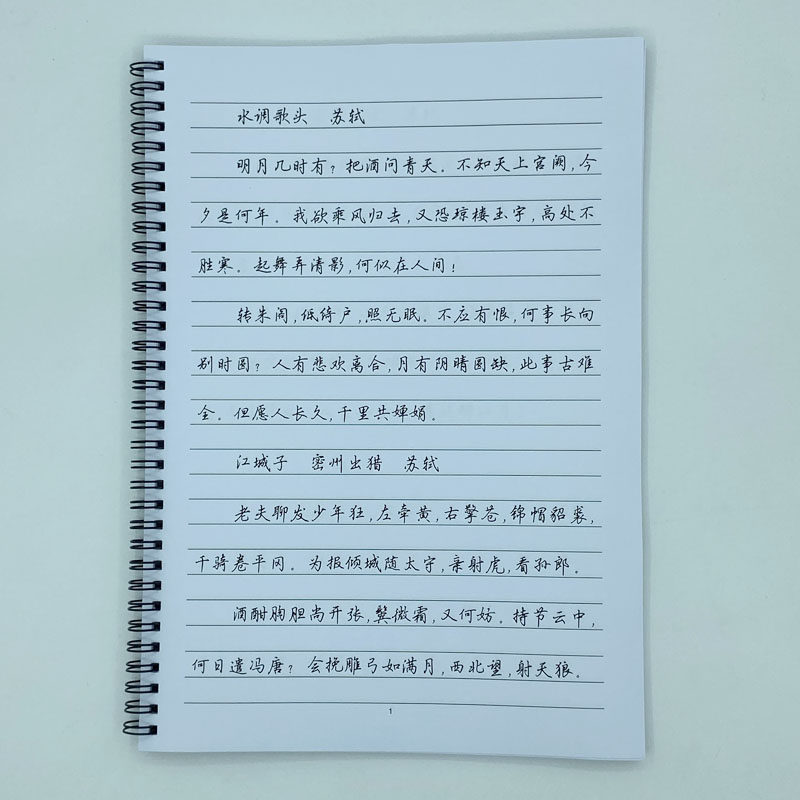 水调歌头 苏轼
明月几时有？把酒问青天。不知天上宫阙，今
夕是何年。我欲乘风归去，又恐琼楼玉宇，高处不
胜寒。起舞弄清影，何似在人间！
转朱阁，低绮户，照无眠。不应有恨，何事长向
别时圆？人有悲欢离合，月有阴晴圆缺，此事古难
全。但愿人长久，千里共婵娟。
江城子 密州出猎 苏轼
老夫聊发少年狂，左牵黄，右擎苍，锦帽貂裘，
千骑卷平冈。为报倾城随太守，亲射虎，看孙郎。
酒酣胸胆尚开张，鬓微霜，又何妨。持节云中，
何日遣冯唐？会挽雕弓如满月，西北望，射天狼。
1